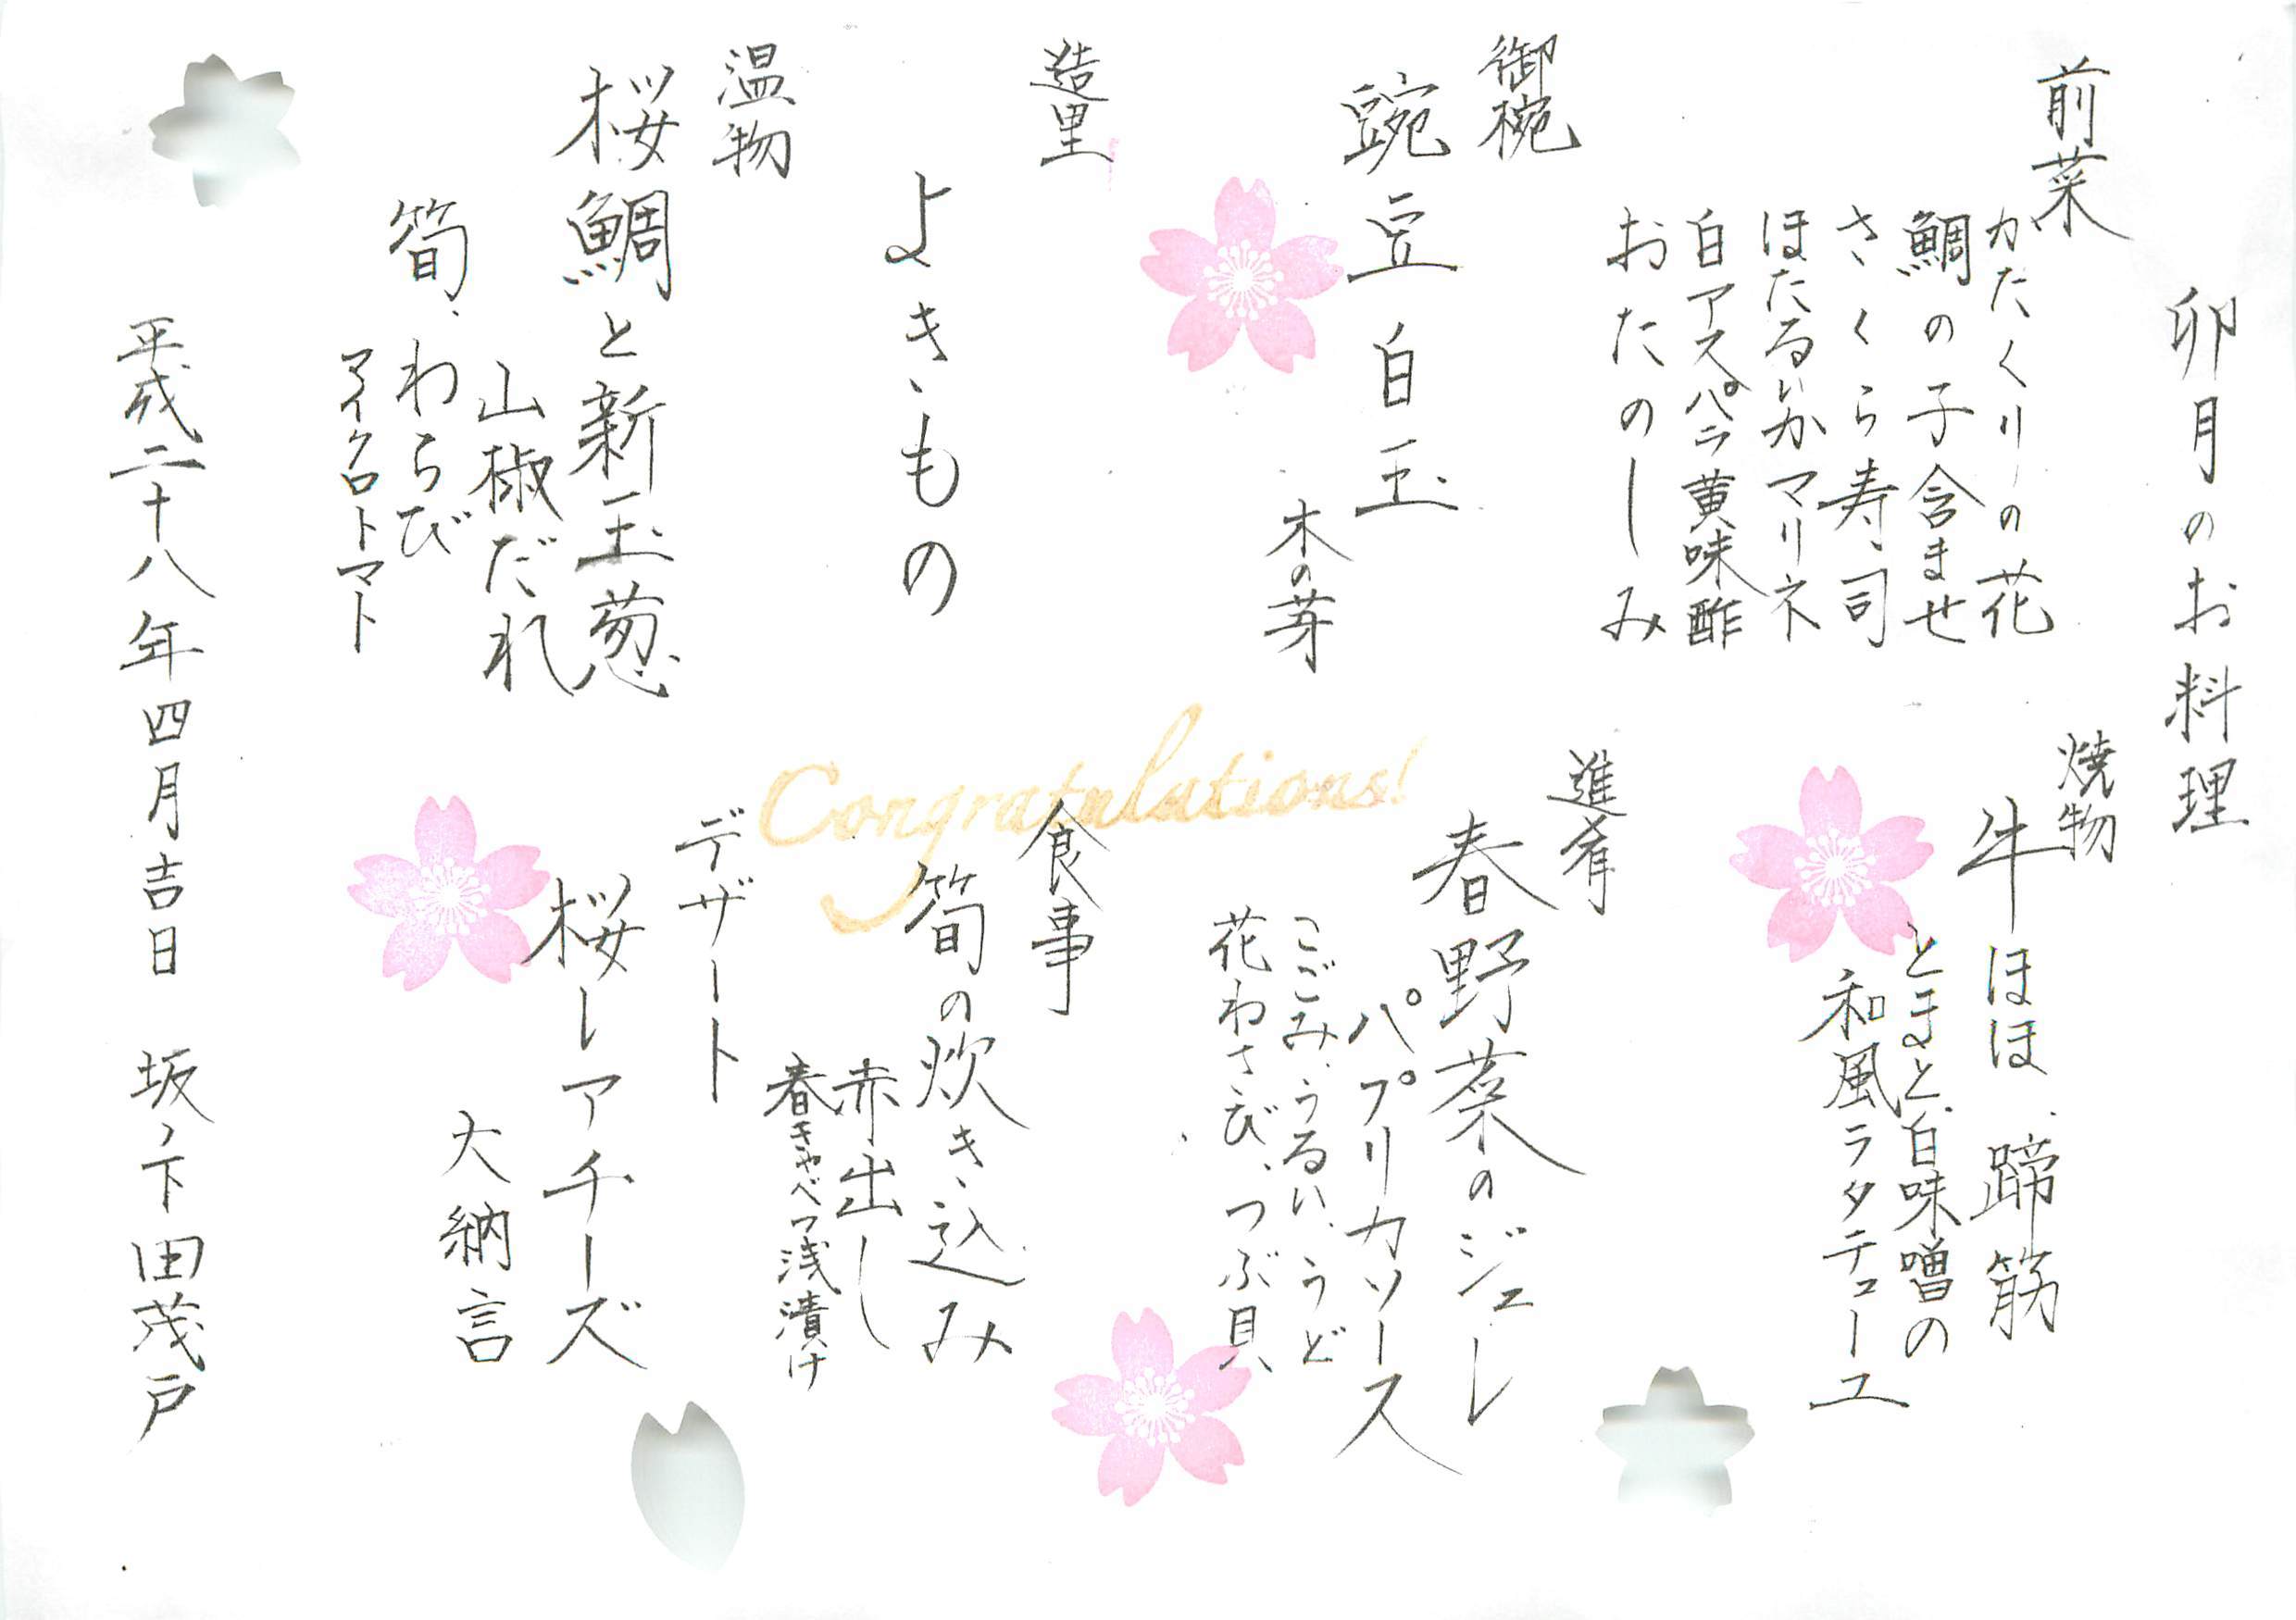 卯月のお料理
前菜
かたくりの花
鯛の子含ませ
さくら寿司
ほたるいかマリネ
白アスパラ黄味酢
おたのしみ
御椀
豌豆白玉
木の芽
造里
よきもの
温物
桜鯛と新玉葱
山椒だれ
筍、わらび
マイクロトマト
焼物
牛ほほ、蹄筋
とまと、白味噌の
和風ラタテューユ
進肴
春野菜のジュレ
パプリカソース
こごみ、うるい、うど
花わさび、つぶ貝
Congratulations!
食事
筍の炊き込み
赤出し
春キャベツ浅漬け
デザート
桜レアチーズ
大納言
平成二十八年四月吉日 坂ノ下田茂戸